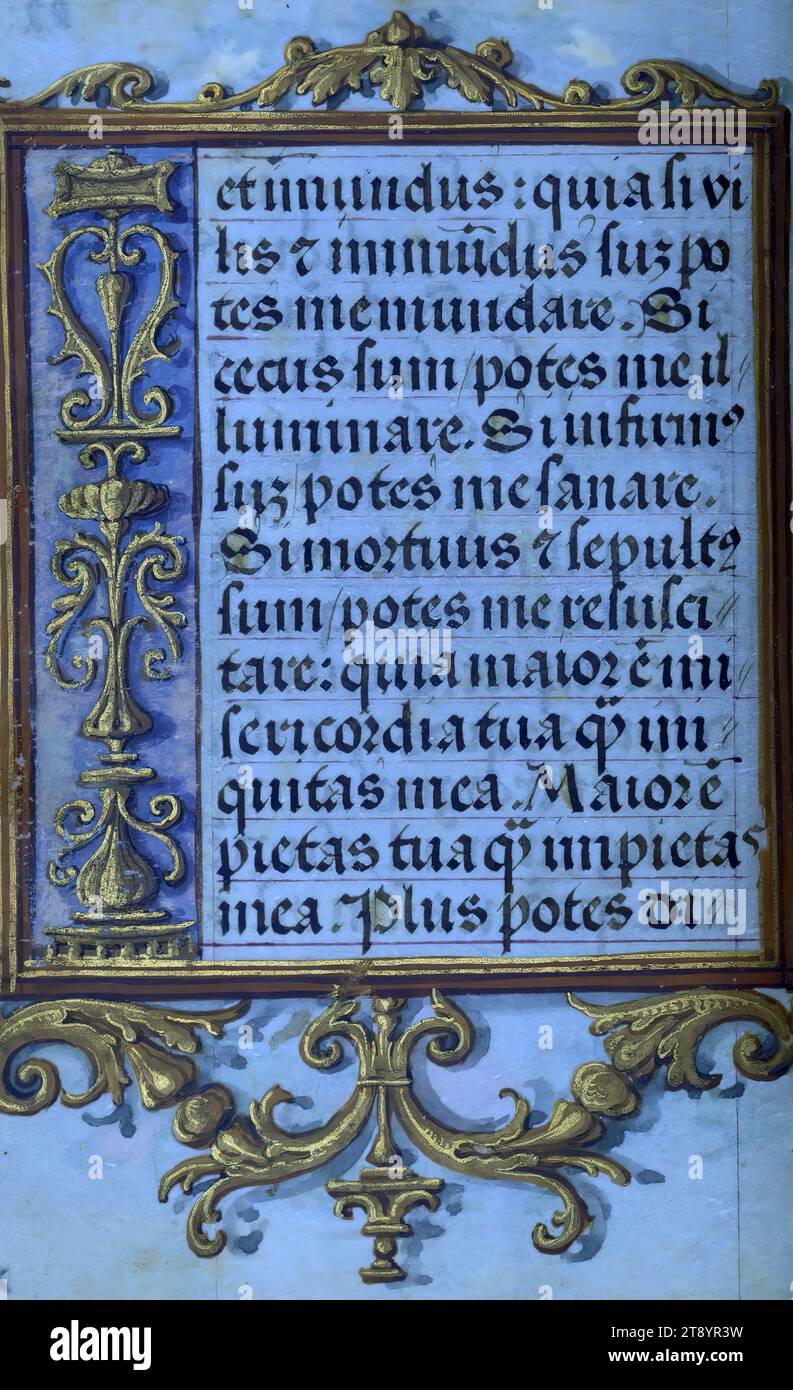 et imundus: quia si vi
lis ⁊ inmũdus suꝫ po
tes me mundare. Si
cecus sum / potes me il//
luminare. Si infirmꝰ
suꝫ / potes me sanare.
Si mortuus ⁊ sepultꝰ
sum / potes me resusci//
tare: quia maior ē mi
sericordia tua q̃ͫ ini//
quitas mea. Maior ē
pietas tua q̃ͫ impietas
mea. Plus potes di//
alamy
Image ID: 2T8YR3W
www.alamy.com